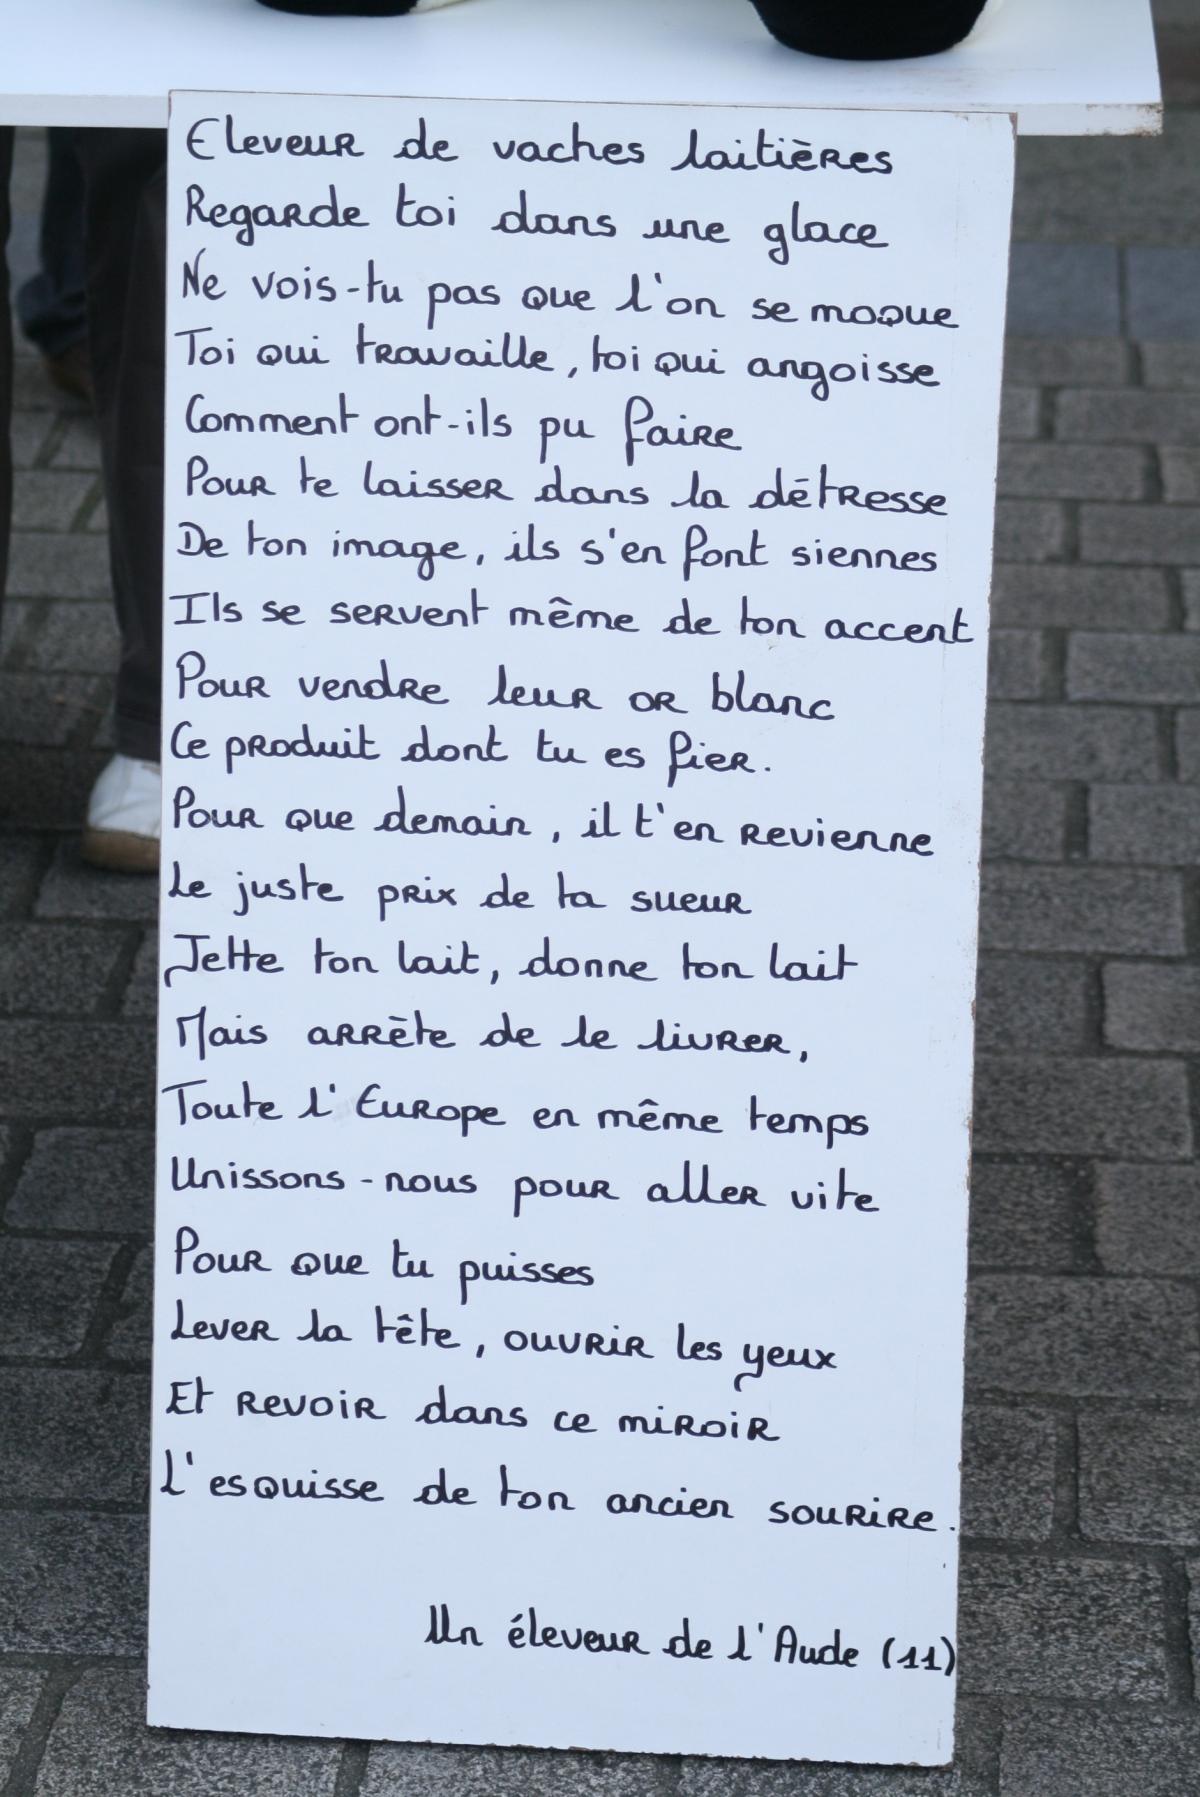 Eleveur de vaches laitières
Regarde toi dans une glace
Ne vois-tu pas que l'on se moque
Toi qui travaille, toi qui angoisse
Comment ont-ils pu faire
Pour te laisser dans la détresse
De ton image, ils s'en font siennes
Ils se servent même de ton accent
Pour vendre leur or blanc
Ce produit dont tu es fier.
Pour que demain, il t'en revienne
Le juste prix de ta sueur
Jette ton lait, donne ton lait
Mais arrète de le livrer,
Toute l'Europe en même temps
Unissons-nous pour aller vite
Pour que tu puisses
Lever la tête, ouvrir les yeux
Et revoir dans ce miroir
L'esquisse de ton ancien sourire.
Un éleveur de l'Aude (11)